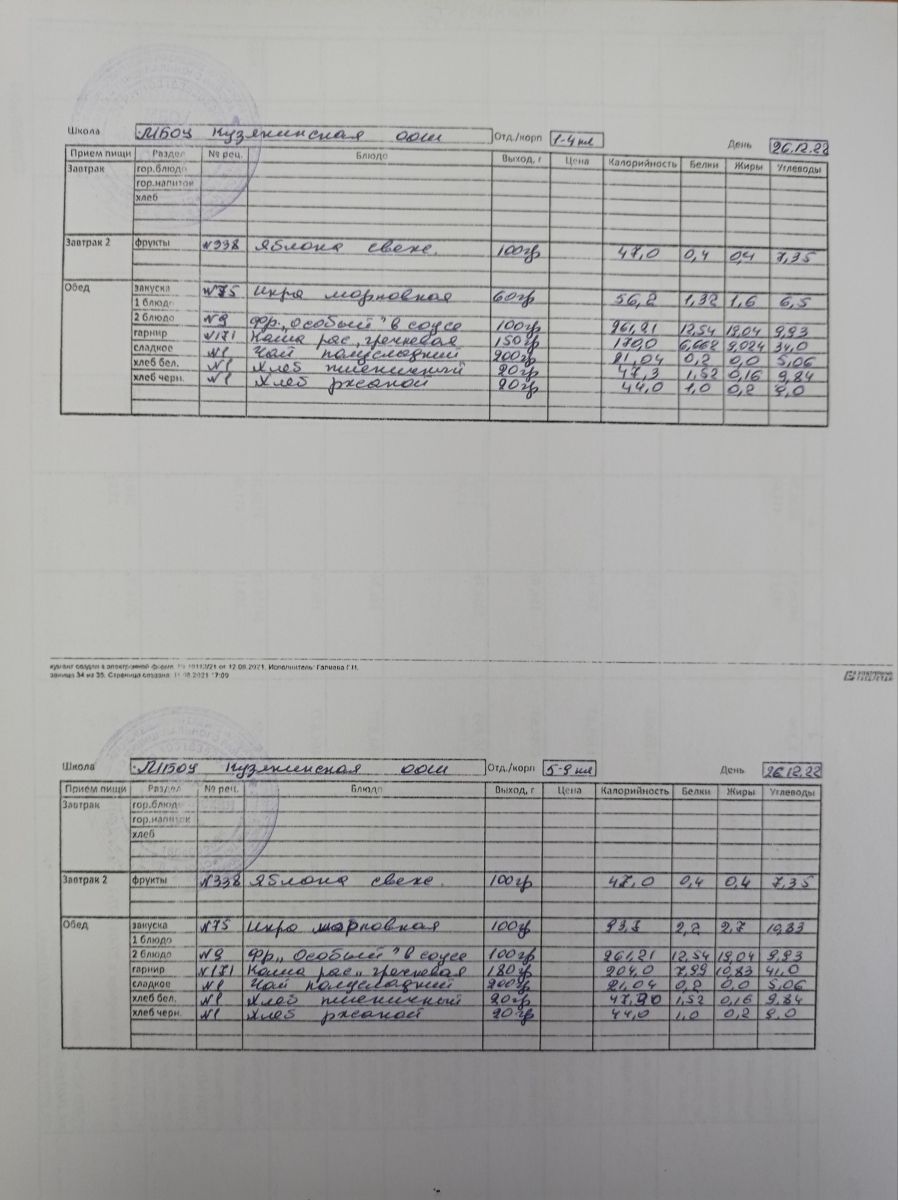 Школа МБОУ Кузякинская ООШ Отд./корп 1-4 кл День 26.12.22
Прием пищи Раздел № рец. Блюдо Выход, г Цена Калорийность Белки Жиры Углеводы
Завтрак гор.блюдо
гор.напиток
хлеб
Завтрак 2 фрукты №338 Яблока свеже. 100гр 47,0 0,4 0,4 7,35
Обед закуска №75 Икра морковная 60гр 56,2 1,32 1,6 6,5
1 блюдо
2 блюдо №9 Фр. „Особый" в соусе 100гр 261,21 12,54 19,04 9,93
гарнир №171 Каша рас„ гречневая 150гр 170,0 6,662 9,024 34,0
сладкое №1 Чай полусладкий 200гр 21,04 0,2 0,0 5,06
хлеб бел. №1 Хлеб пшеничный 20гр 47,3 1,52 0,16 9,84
хлеб черн. №1 Хлеб ржаной 20гр 44,0 1,0 0,2 9,0
кумент создан в электронной форме. № от 12.08.2021. Исполнитель: Галиева Г.И.
аница 34 из 35. Страница создана: 11.08.2021 17:09
Школа МБОУ Кузякинская ООШ Отд./корп 5-9 кл День 26.12.22
Прием пищи Раздел № рец. Блюдо Выход, г Цена Калорийность Белки Жиры Углеводы
Завтрак гор.блюдо
гор.напиток
хлеб
Завтрак 2 фрукты №338 Яблока свеже. 100гр 47,0 0,4 0,4 7,35
Обед закуска №75 Икра морковная 100гр 93,5 2,2 2,7 10,83
1 блюдо
2 блюдо №9 Фр„ Особый" в соусе 100гр 261,21 12,54 19,04 9,93
гарнир №171 Каша рас„ гречневая 180гр 204,0 7,99 10,83 41,0
сладкое №1 Чай полусладкий 200гр 21,04 0,2 0,0 5,06
хлеб бел. №1 Хлеб пшеничный 20гр 47,30 1,52 0,16 9,84
хлеб черн. №1 Хлеб ржаной 20гр 44,0 1,0 0,2 9,0